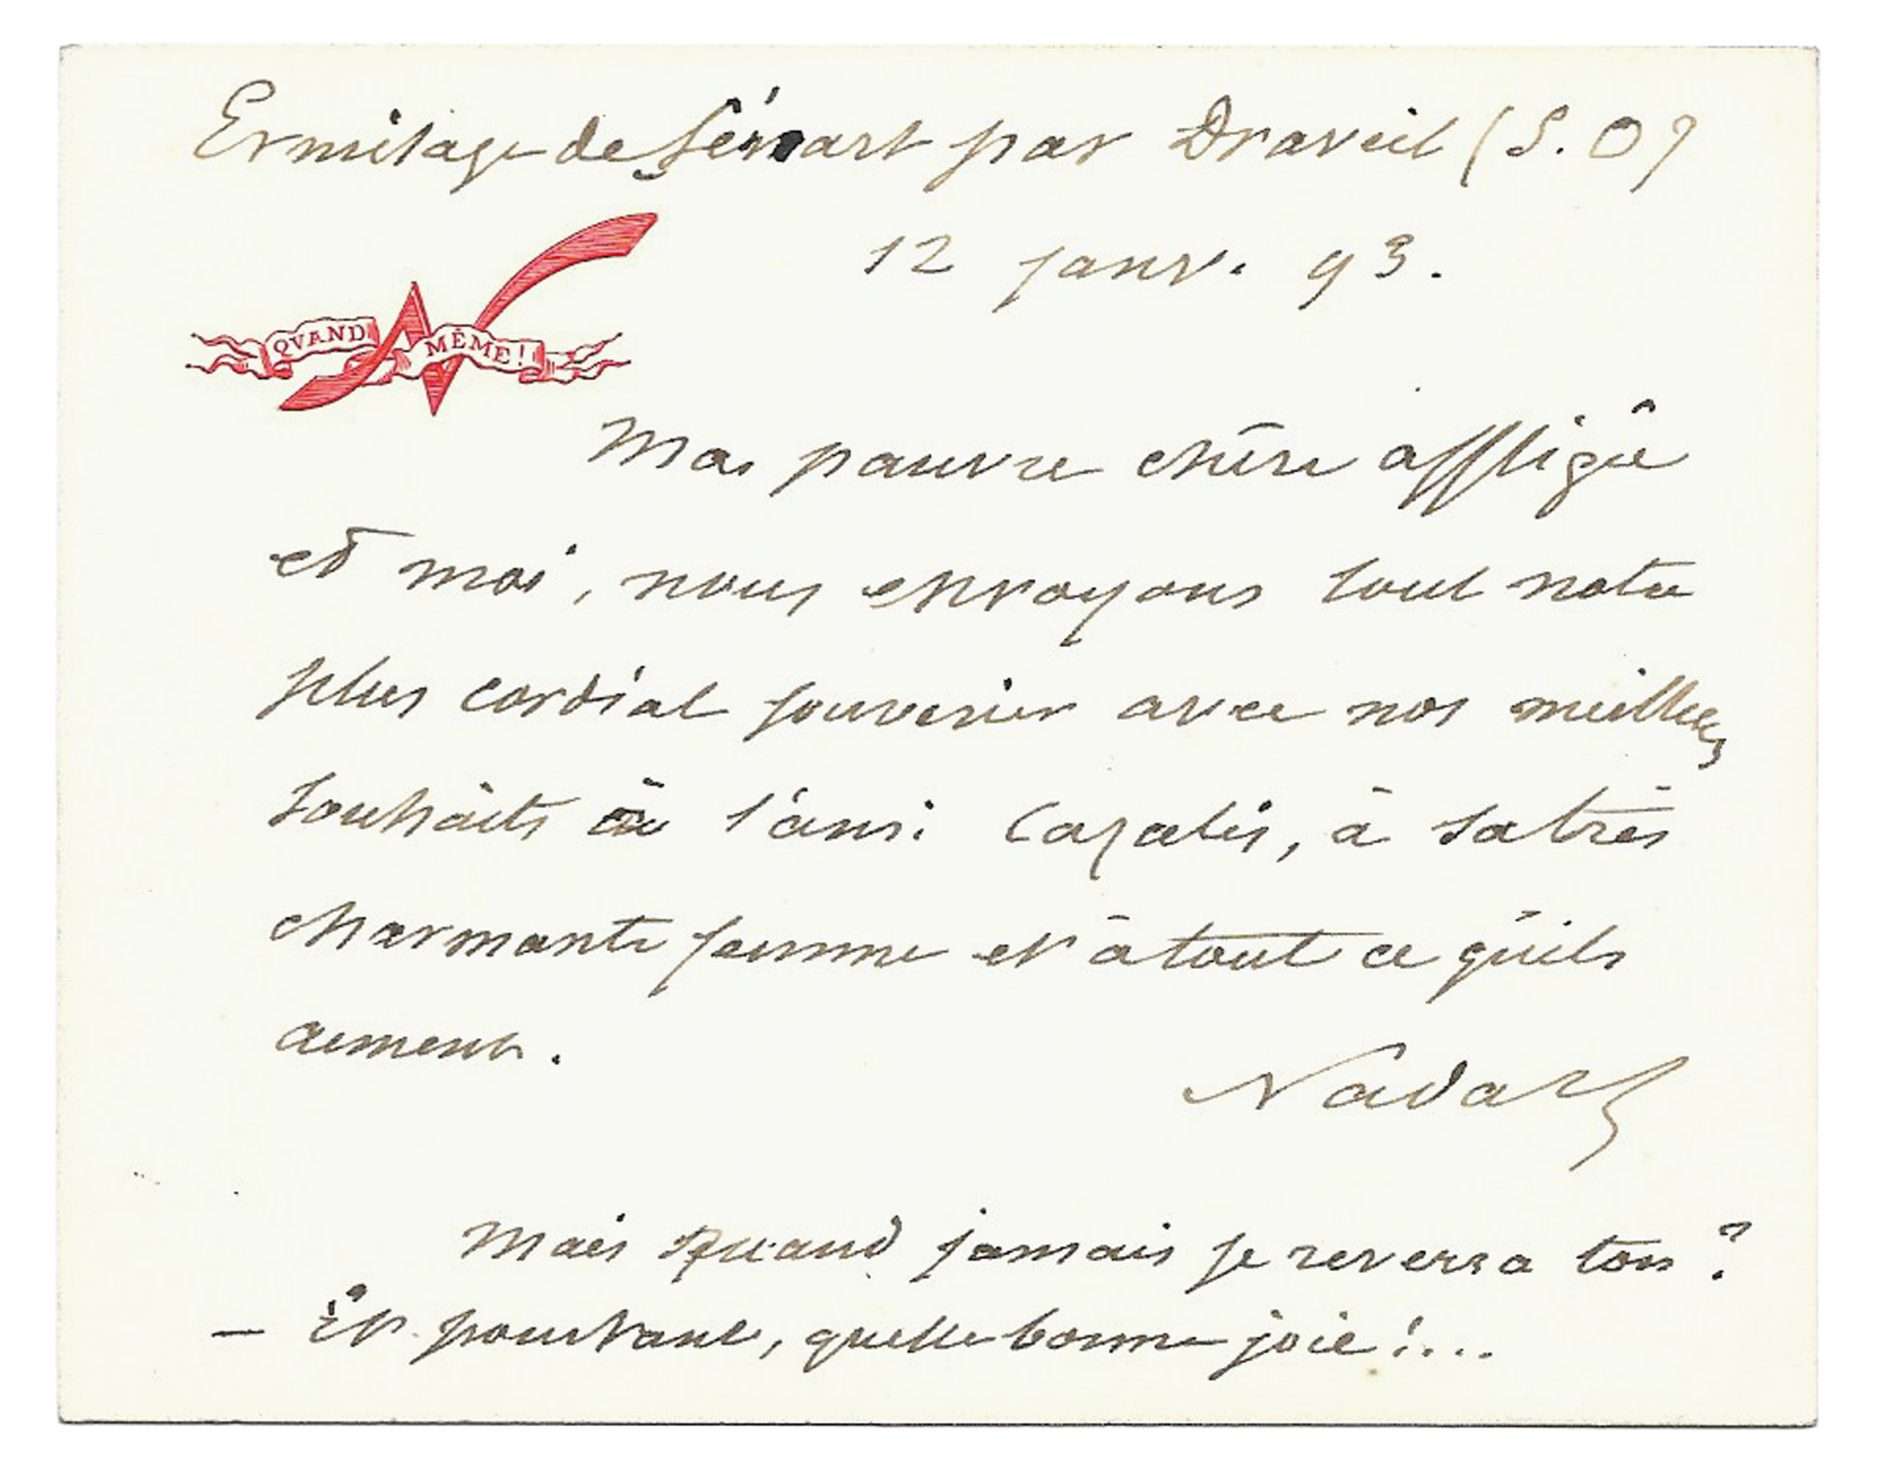 Ermitage de Sénart par Draveil (S. O)
12 janv. 93.
QVAND MÊME!
Ma pauvre chère affligée
et moi, nous envoyons tout notre
plus cordial souvenir avec nos meilleurs
souhaits à l'ami Cazalis, à sa très
charmante femme et à tout ce qu'ils
aiment.
Nadar
Mais quand jamais se reverra ton?
— Et pourtant, quelle bonne joie!...